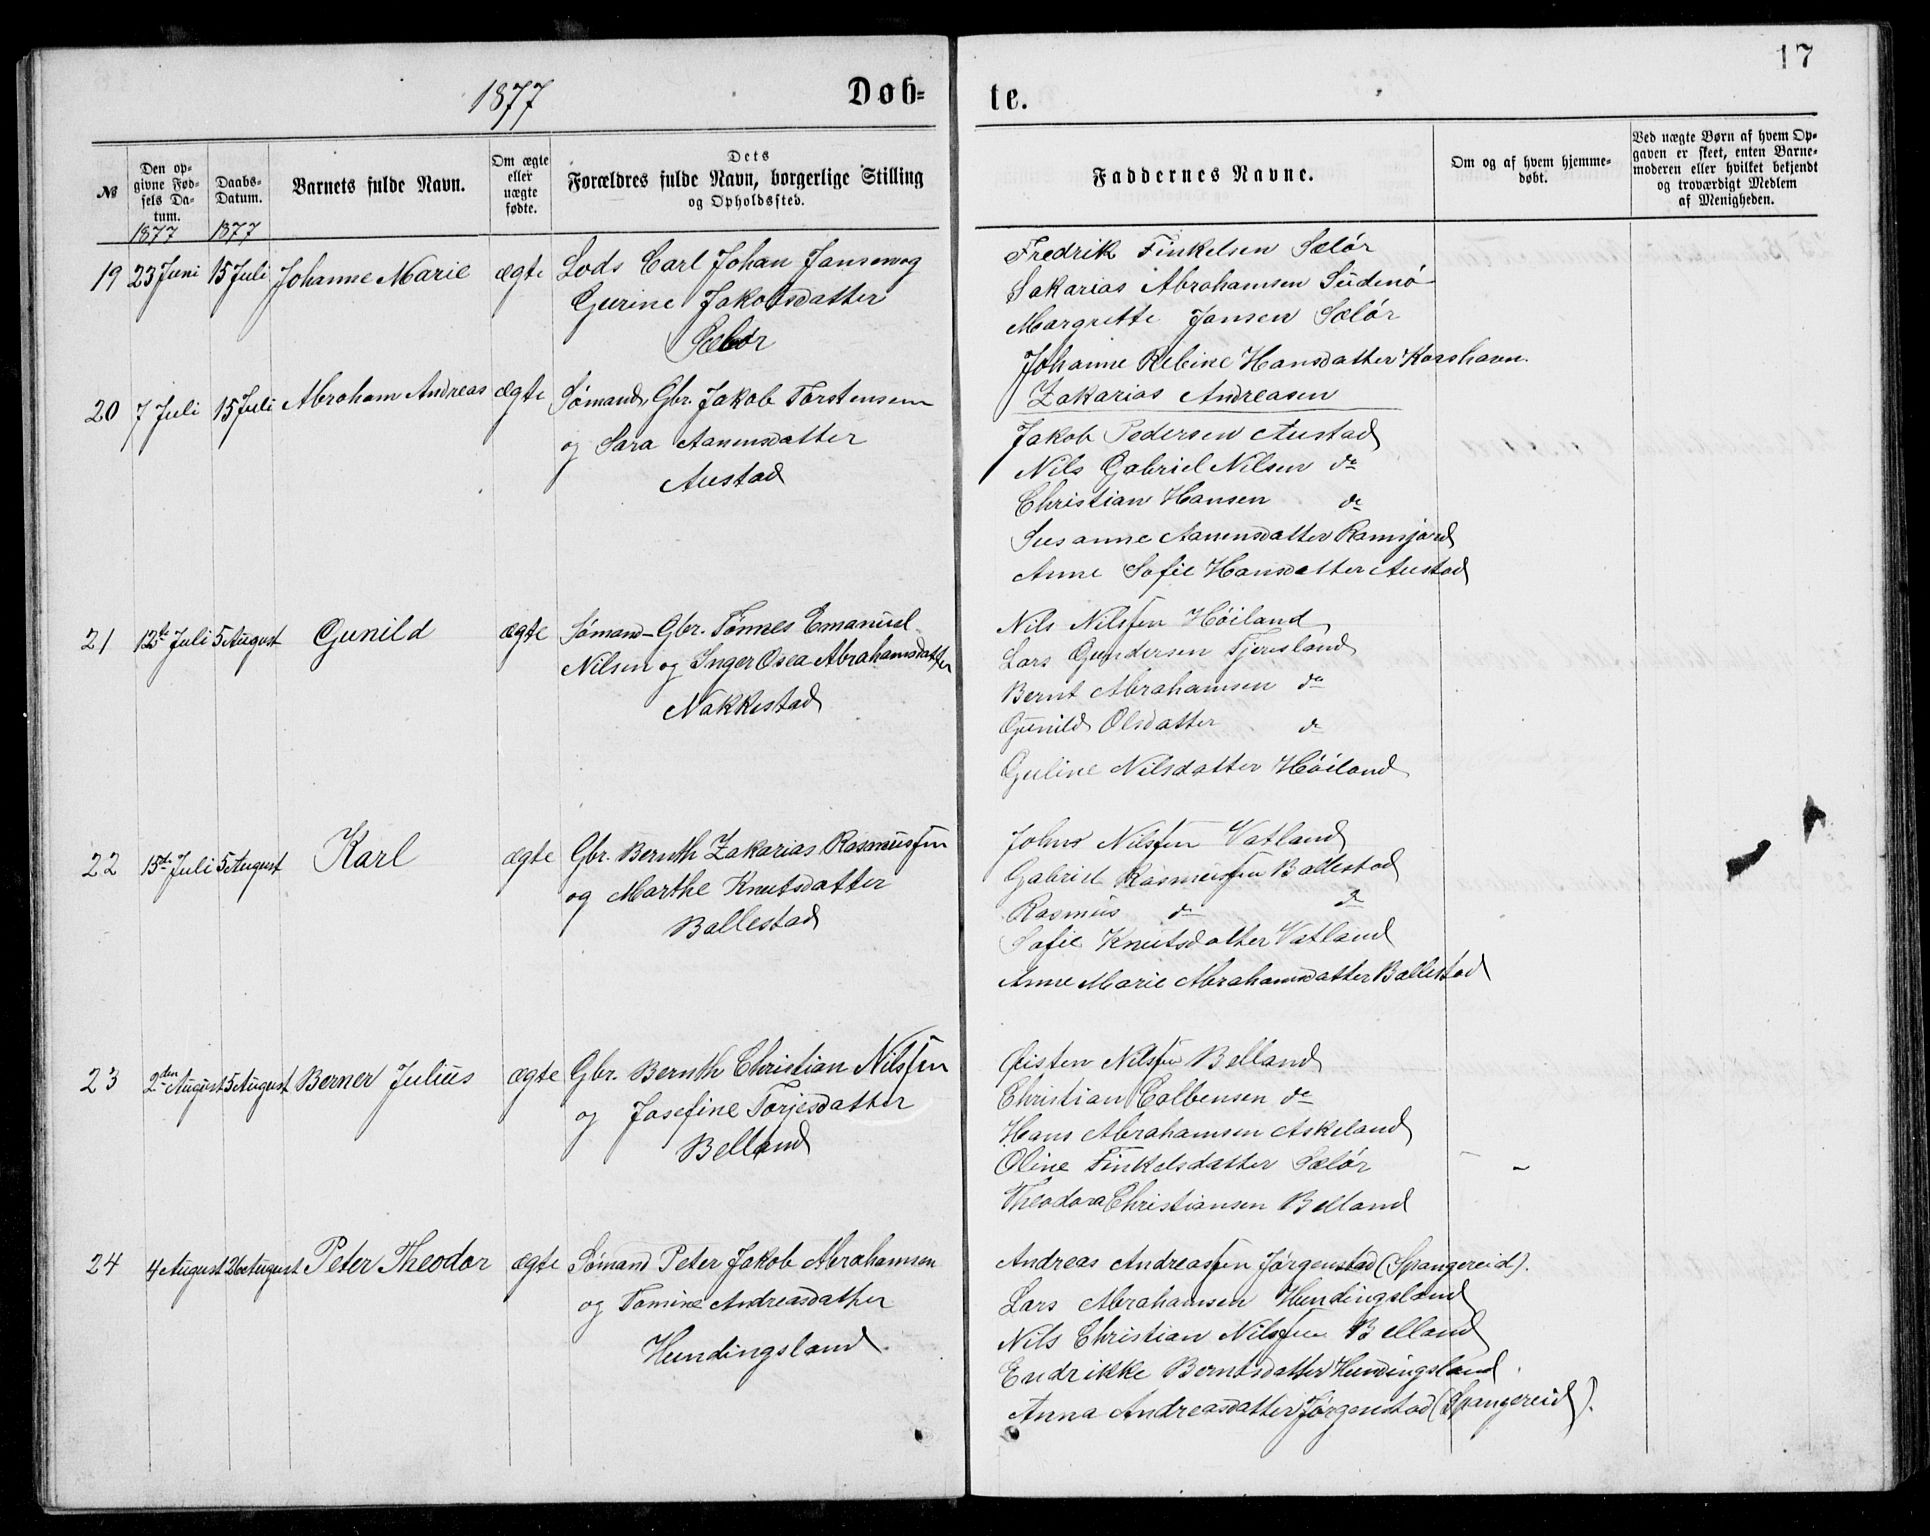 17
1877 Døb- te.
№
Den opgivne Fødsels Datum.
Daabs-Datum.
Barnets fulde Navn.
Om ægte eller uægte fødte.
Dets Forældres fulde Navn, borgerlige Stilling og Opholdssted.
Faddernes Navne.
Om og af hvem hjemmedøbt.
Ved uægte Børn af hvem Opgaven er skeet, enten Barnemoderen eller hvilket bekjendt og troværdigt Medlem af Menigheden.
1877 1877
19 23 Juni 15 Juli Johanne Marie ægte Lods Carl Johan Jansen og
Gurine Jakobsdatter
Selør
Fredrik Finkelsen Sælør
Sakarias Abrahamsen Südenø
Margrette Jansen Sælør
Johanne Rebine Hansdatter Korshavn.
Zakarias Andreasen
20 7 Juli 15 Juli Abraham Andreas ægte Sømand, Gbr. Jakob Torstensen
og Sara Aanensdatter
Austad
Jakob Pedersen Austad
Nils Gabriel Nilsen do
Christian Hansen do
Susanne Aanensdatter Ramsjord
Anne Sofie Hansdatter Austad
21 12te Juli 5 August Gunild ægte Sømand-Gbr. Tønnes Emanuel
Nilsen og Inger Osea Abrahamsdatter
Nakkestad
Nils Nilssen Høiland
Lars Gundersen Tjersland
Bernt Abrahamsen do
Gunild Olsdatter do
Guline Nilsdatter Høiland
22 15de Juli 5 August Karl ægte Gbr. Bernth Zakarias Rasmussen
og Marthe Knutsdatter
Ballestad
Johns Nilssen Vatland
Gabriel Rasmussen Ballestad
Rasmus do do
Sofie Knutsdatter Vatland
Anne Marie Abrahamsdatter Ballestad
23 2den August 5 August Berner Julius ægte Gbr. Bernth Christian Nilssen
og Josefine Torjesdatter
Belland
Nilssen Belland
Christian Colbensen do
Hans Abrahamsen Askeland
Oline Finkelsdatter Sælør
Theodora Christiansen Belland
24 4 August 26 August Peter Theodor ægte Sømand Peter Jakob Abrahamsen
og Tomine Andreasdatter
Hundingsland.
Andreas Andreassen Jørgenstad (Spangereid).
Lars Abrahamsen Hundingsland
Nils Christian Nilssen Belland
Endrikke Berntsdatter Hundingsland.
Anna Andreasdatter Jørgenstad (Spangereid).